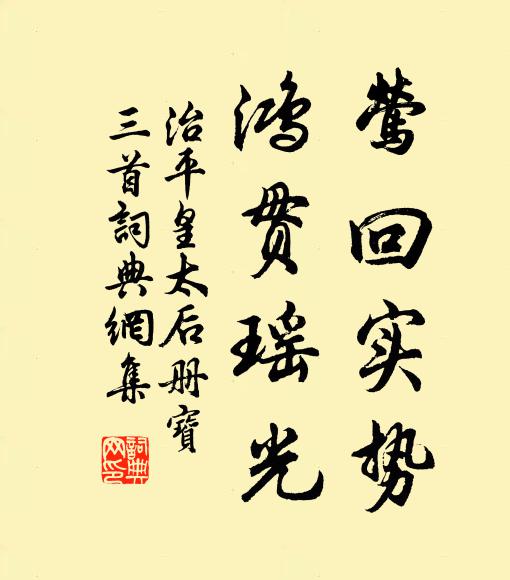 莺回实势
鸿贯瑶光
治平皇太后册寶
三首詞典網集
詞典
网印